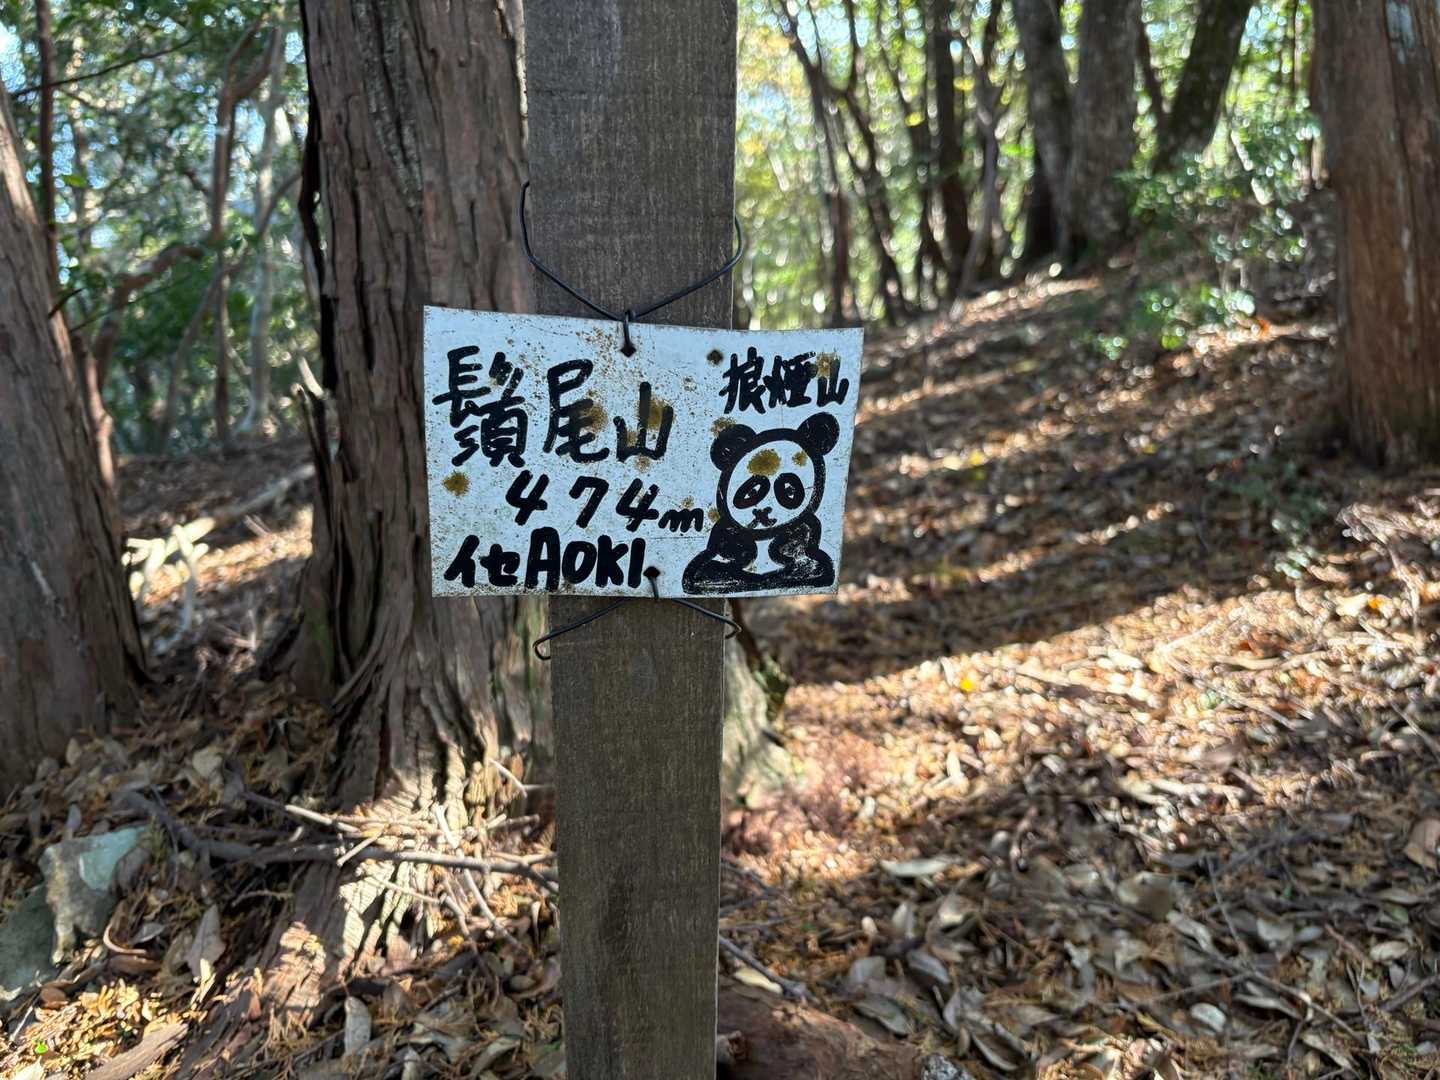 鬚尾山
狼煙山
474m
イセAOKI